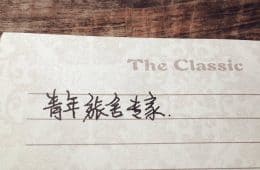 The Classic
青年旅舍专家.